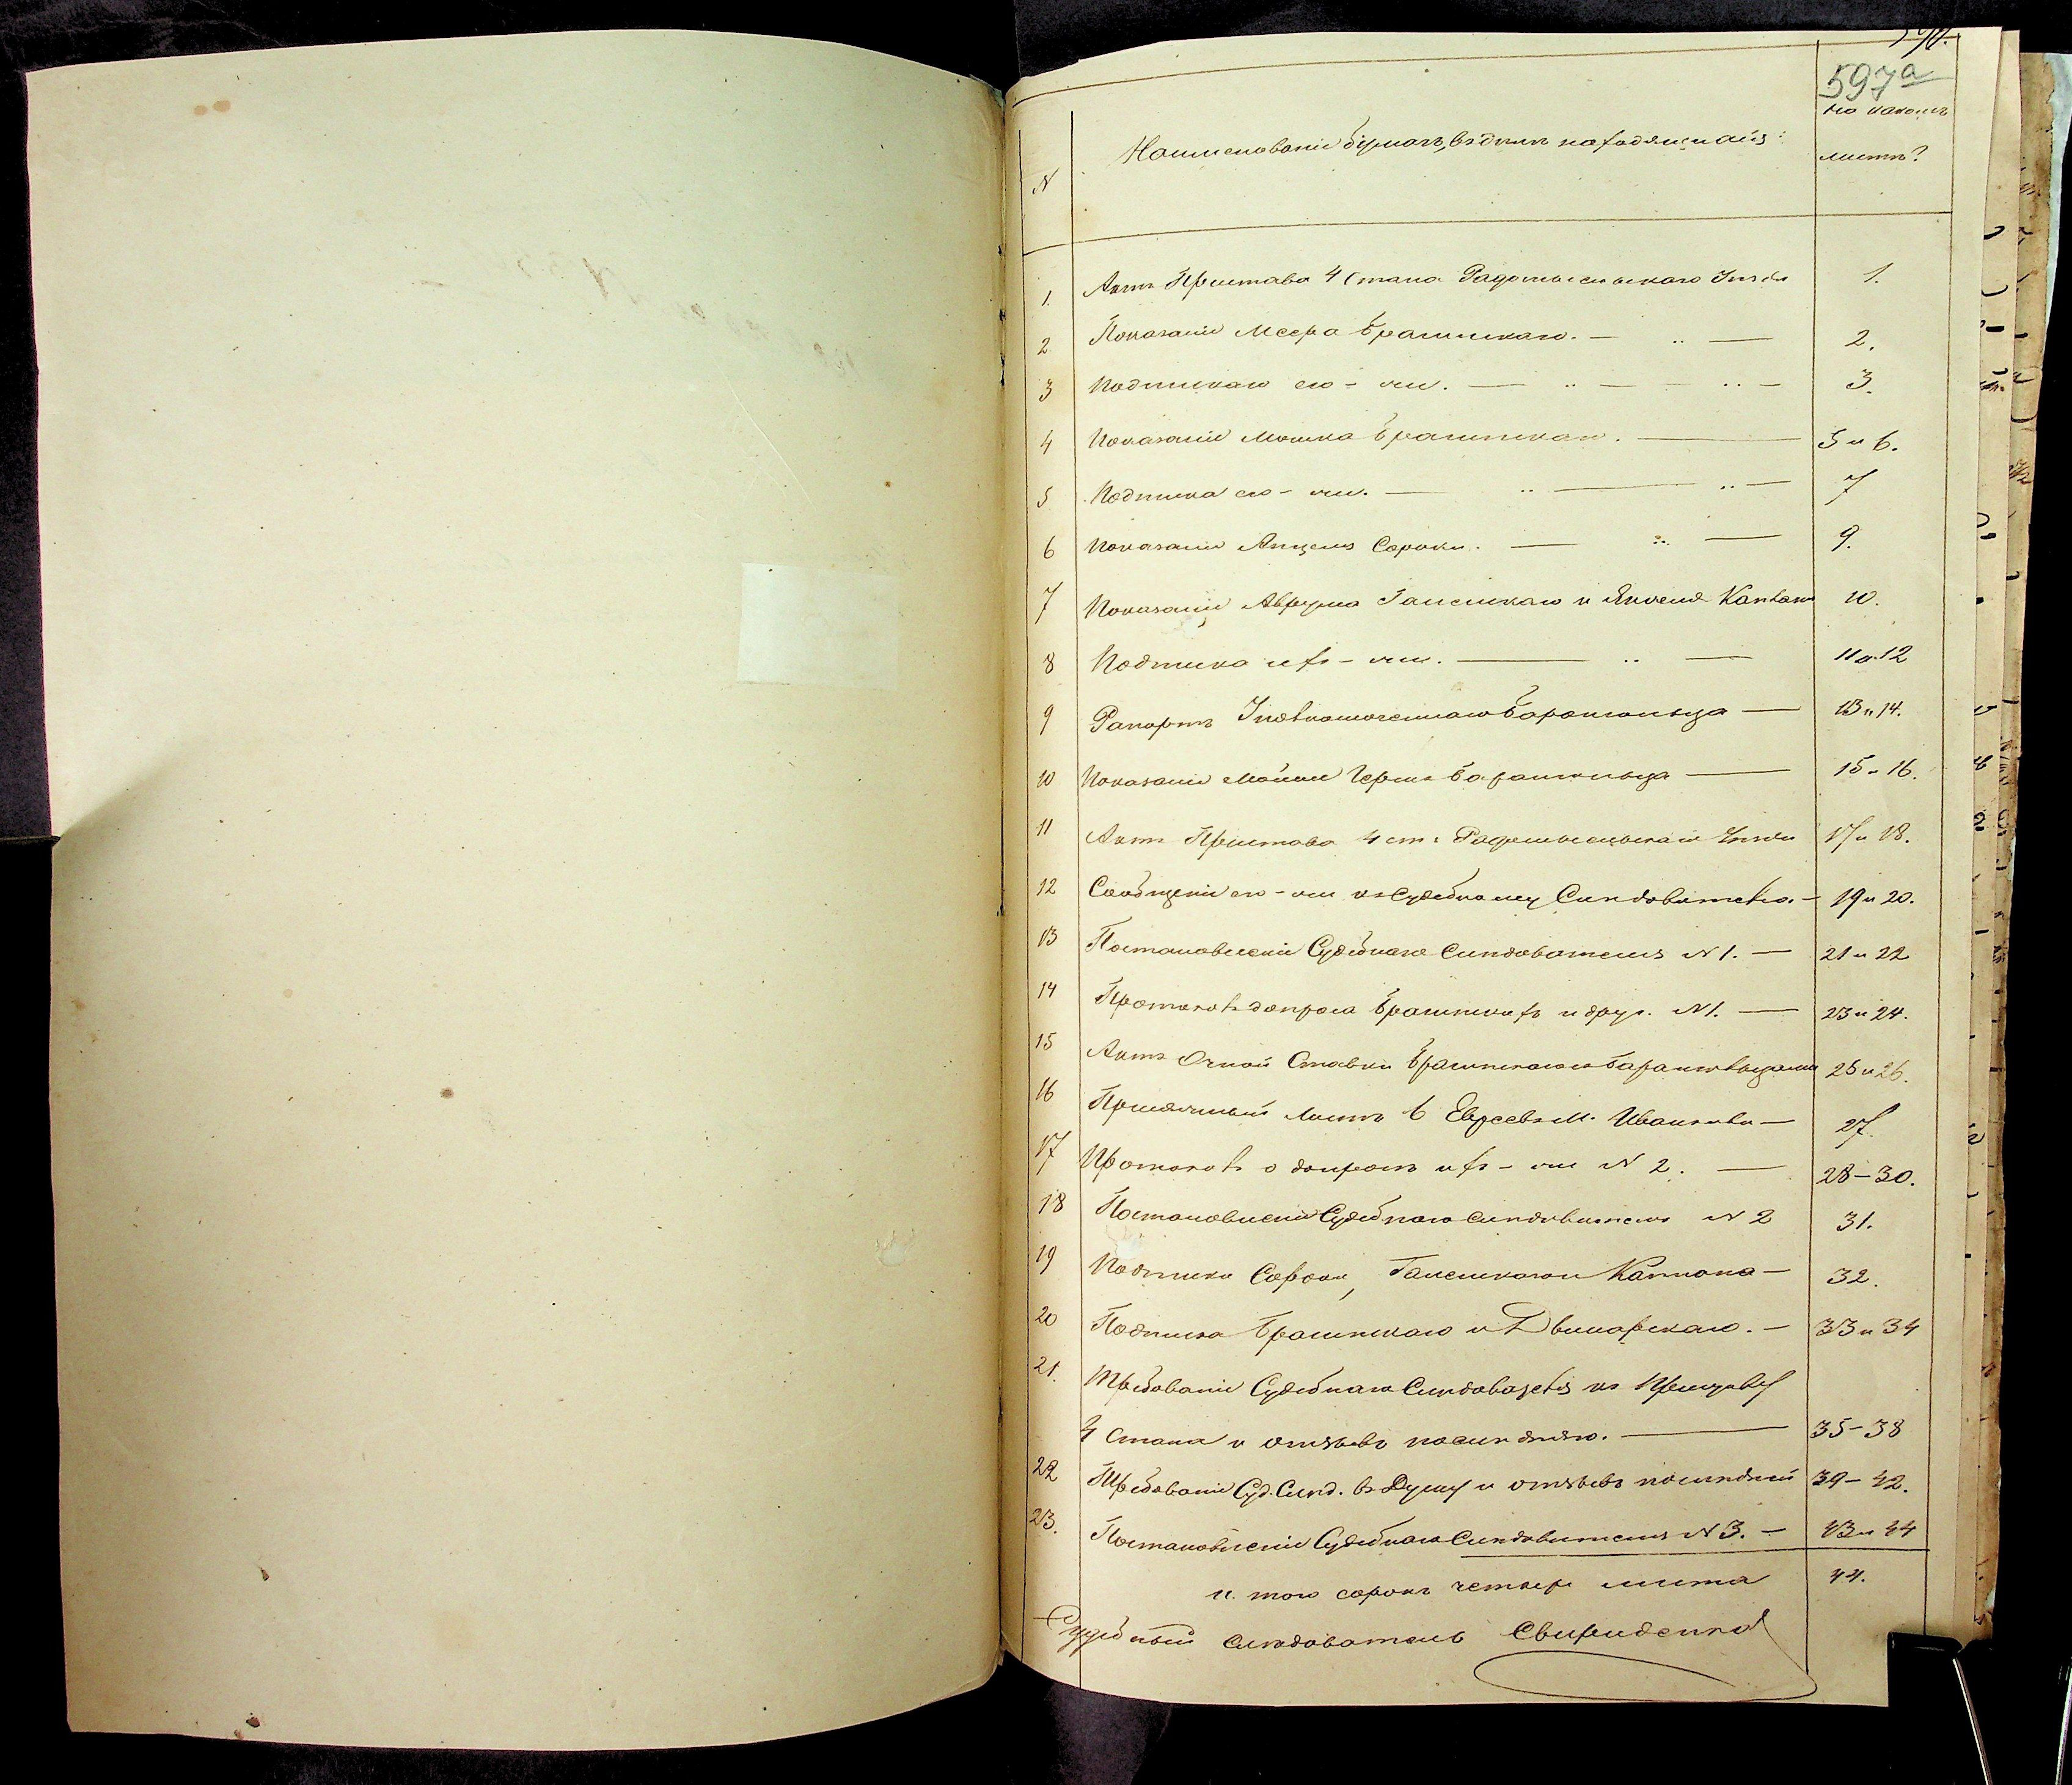 597а
на какомъ
листѣ?
N Наименованіе бумагъ, въ дѣлѣ находящихся:
1. Актъ Пристава 4 Стана Радомысльскаго Уѣзда 1.
2. Показаніе Меера Брагинскаго. — „ — 2.
3 Подписка его-же. — „ — „ — 3.
4 Показаніе Мошка Брагинскаго. — 5 и 6.
5 Подписка его-же. — „ — „ — 7
6 Показаніе Анцеля Сороки. — „ — 9.
7 Показаніе Аврума Галенскаго и Янкеля Каплана 10.
8 Подписка ихъ-же. — „ — 11 и 12
9 Рапортъ Уполномоченнаго — 13 и 14.
10 Показаніе Герша — 15 и 16.
11 Актъ Пристава 4 ст. Радомысльскаго Уѣзда 17 и 18.
12 Сообщеніе его-же къ Судебному Слѣдователю. — 19 и 20.
13 Постановленіе Судебнаго Слѣдователя N 1. — 21 и 22
14 Протоколъ допроса Брагинскихъ и друг. N 1. — 23 и 24.
15 Актъ Очной Ставки Брагинскаго 25 и 26.
16 Присяжный листъ 6 Евреевъ М. Иванкова — 27.
17 Протоколъ о допросѣ ихъ-же N 2. — 28-30.
18 Постановленіе Судебнаго Слѣдователя N 2 31.
19 Подписки Сороки, Галенскаго и Каплана — 32.
20 Подписка Брагинскаго и Двинарскаго. — 33 и 34
21. Требованіе Судебнаго Слѣдователя къ Приставу
4 Стана и отзывъ послѣдняго. — 35-38
22 Требованіе Суд. Слѣд. въ Думу и отзывъ послѣдней 39-42.
23. Постановленіе Судебнаго Слѣдователя N 3. — 43 и 44
и того сорокъ четыре листа 44.
Судебный Слѣдователь Свириденко